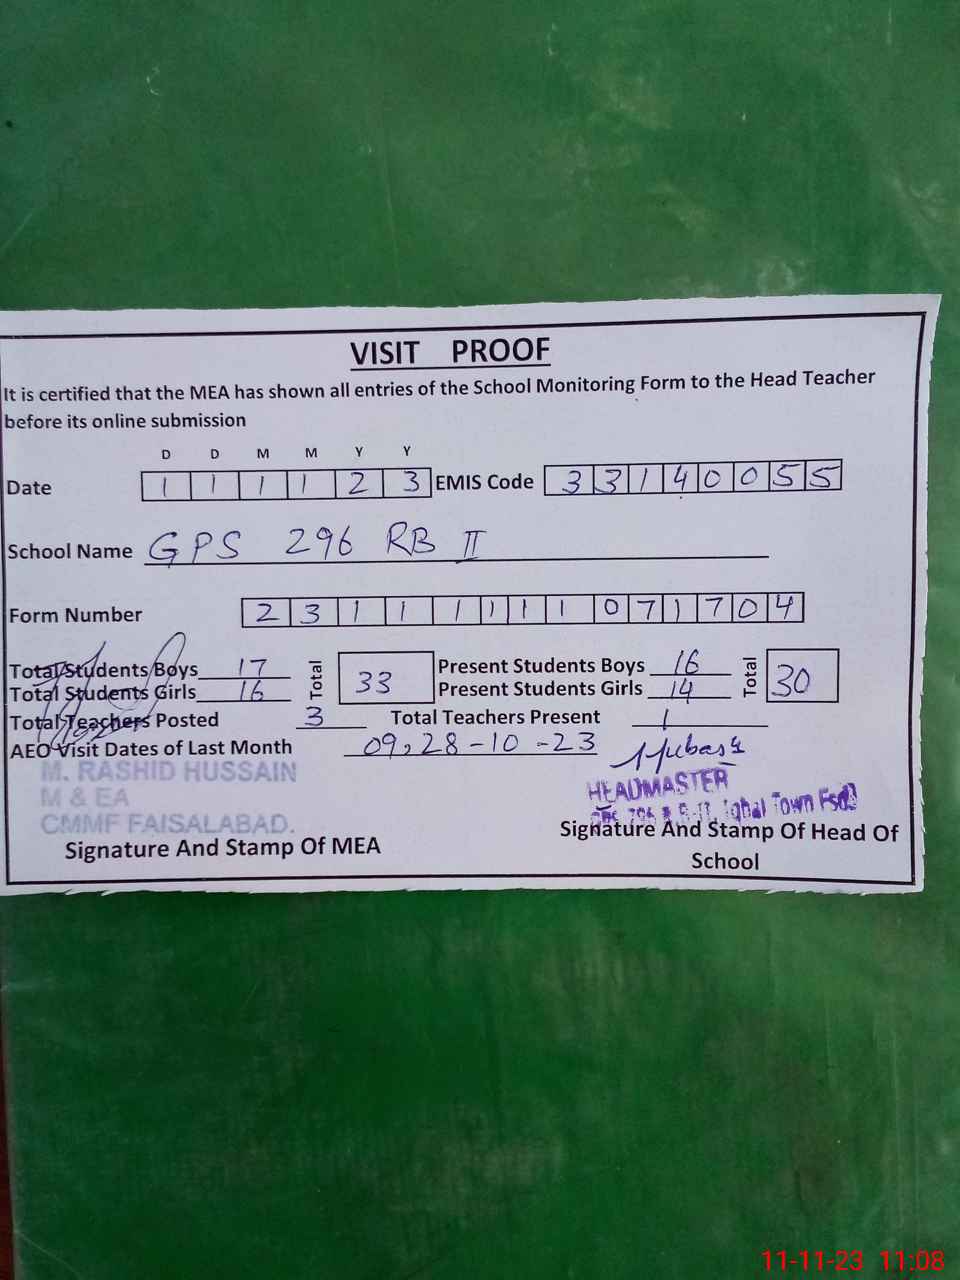 VISIT PROOF
It is certified that the MEA has shown all entries of the School Monitoring Form to the Head Teacher
before its online submission
D D M M Y Y
Date 1 1 1 1 2 3 EMIS Code 3 3 1 4 0 0 5 5
School Name GPS 296 RB II
Form Number 2 3 1 1 1 1 1 1 0 7 1 7 0 4
Total Students Boys 17 Total 33 Present Students Boys 16 Total 30
Total Students Girls 16 Present Students Girls 14
Total Teachers Posted 3 Total Teachers Present 1
AEO Visit Dates of Last Month 09, 28-10-23
M. RASHID HUSSAIN
M & EA
CMMF FAISALABAD.
Signature And Stamp Of MEA
HEADMASTER
Iqbal Town Fsd
Signature And Stamp Of Head Of
School
11-11-23 11:08